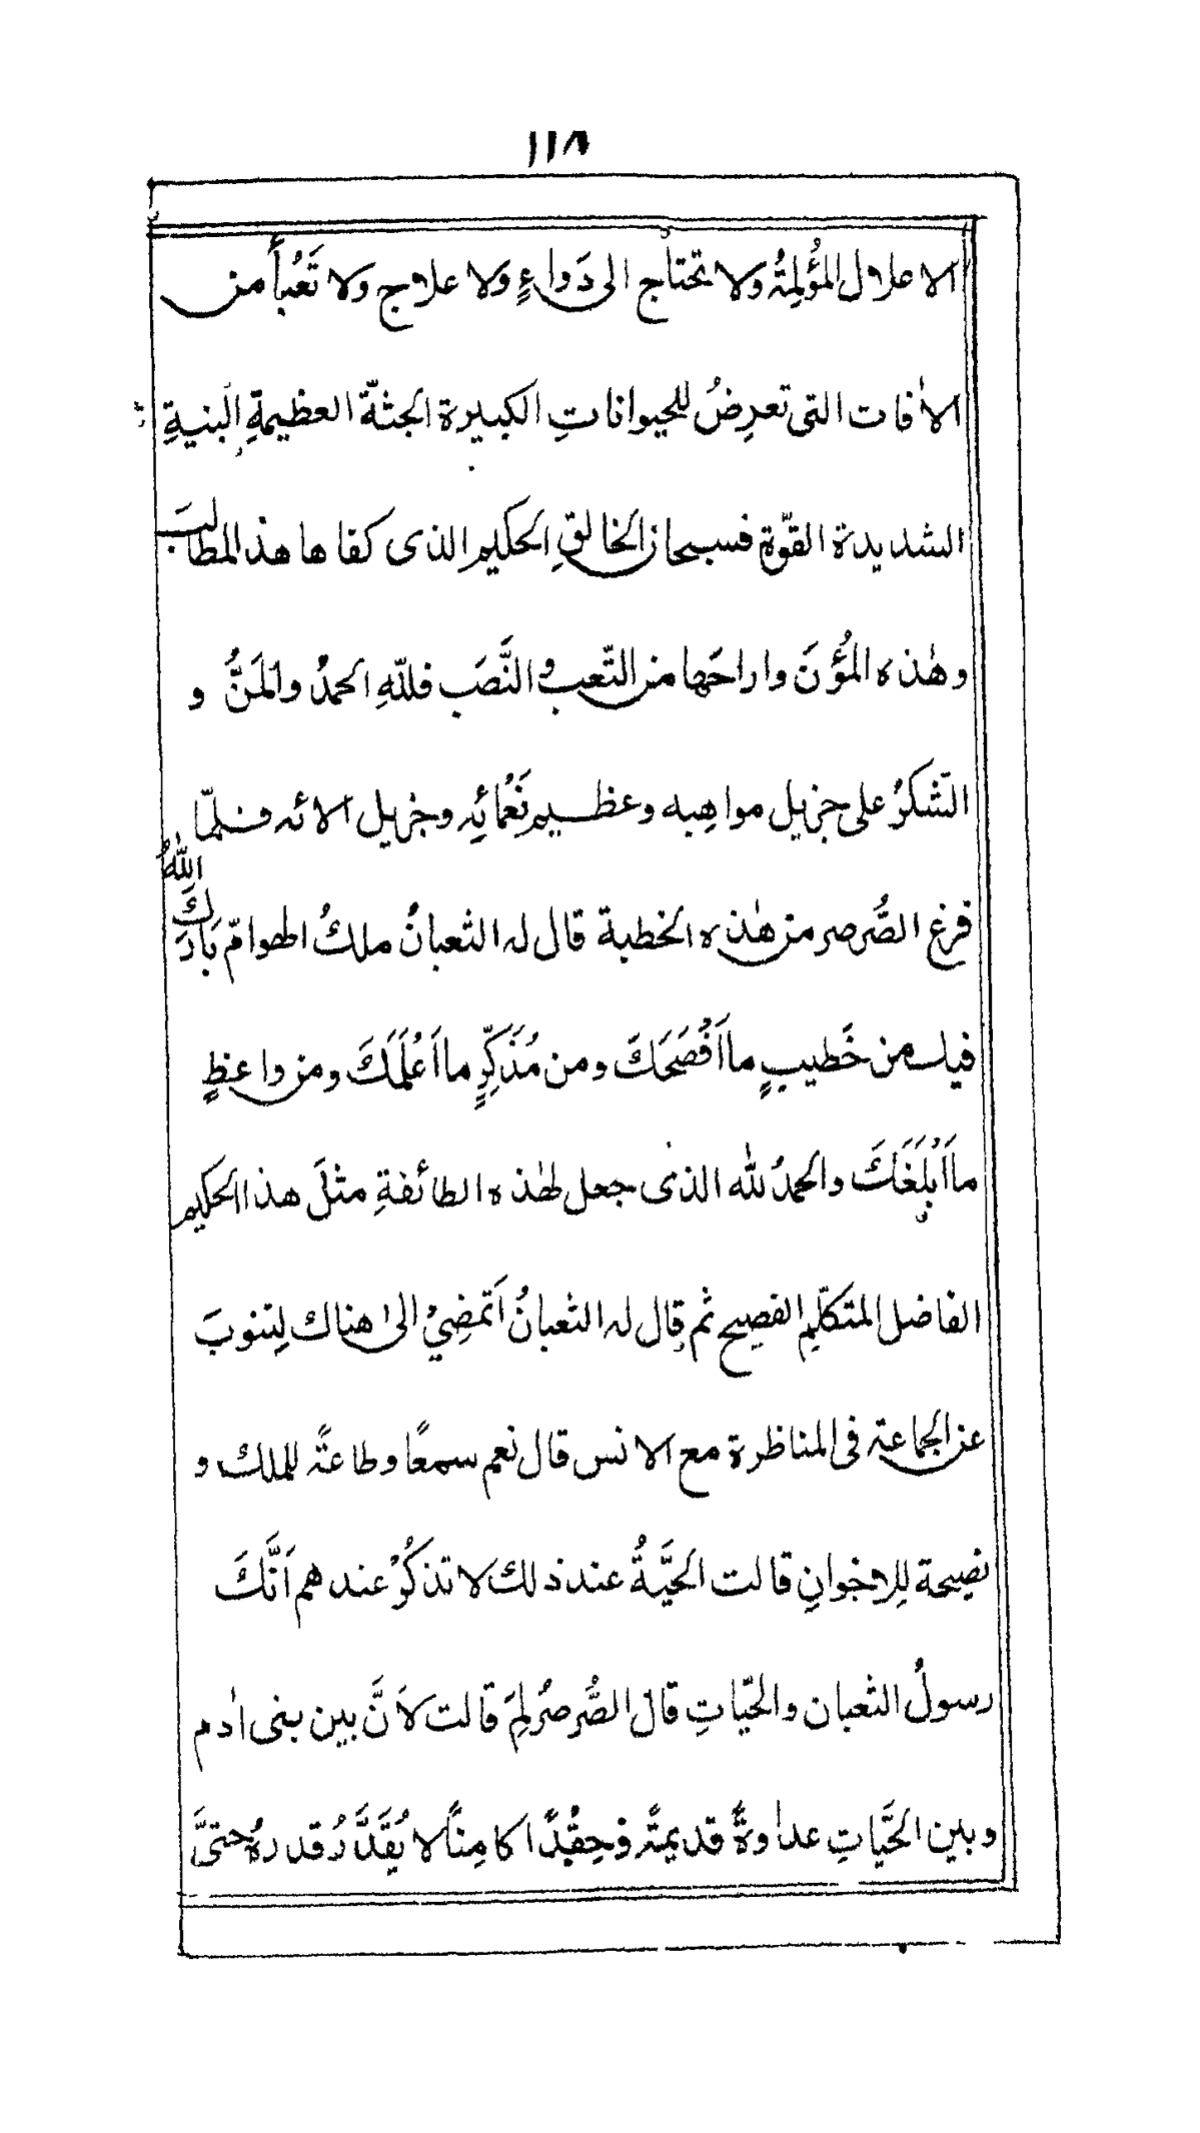 ١١٨
الاعلال المُؤلِمَةُ ولا تحتاج الى دَواءٍ وَلا علاج ولا تَعْبَأُ من
الاٰفات التى تعرِضُ للحيواناتِ الكبيرة الجثّة العظيمةِ البنيةِ
الشديدة القوّة فسبحان الخالقِ الحكيم الذى كفاها هذ المطالبَ
وهٰذه المُؤَنَ واراحَها من التّعب و النَّصَب فللّهِ الحمدُ والمَنُّ و
الشّكرُ على جزيل مواهِبه وعظيم نَعْمائِه وجزيل الائه فلمّا
فرغ الصُّرصر من هٰذه الخطبة قال له الثعبانُ ملكُ الهوامّ بَارَكَ اللهُ
فيك من خَطيبٍ ما اَفْصَحَكَ ومن مُذَكِّرٍ ما اَعْلَمَكَ ومن واعظٍ
ما اَبْلَغَكَ والحمدُ لله الذى جعل لهٰذه الطائفةِ مثلَ هذا الحكيم
الفاضل المتكلّمِ الفصيح ثم قال له الثعبانُ اَتمضِيْ الىٰ هناك لِتنوبَ
عن الجماعة فى المناظرة مع الانس قال نعم سمعًا وطاعةً للملك و
نصيحة لِلاخوانِ قالت الحَيَّةُ عند ذلك لا تذكُرْ عندهم اَنَّكَ
رسولُ الثعبان والحيّاتِ قال الصُّرصرُ لِمَ قالت لاَنَّ بين بنى اٰدم
وبين الحَيَّاتِ عداوةً قديمةً وحِقْدًا كامِنًا لا يُقَدَّرُ قدرهُ حتىَّ